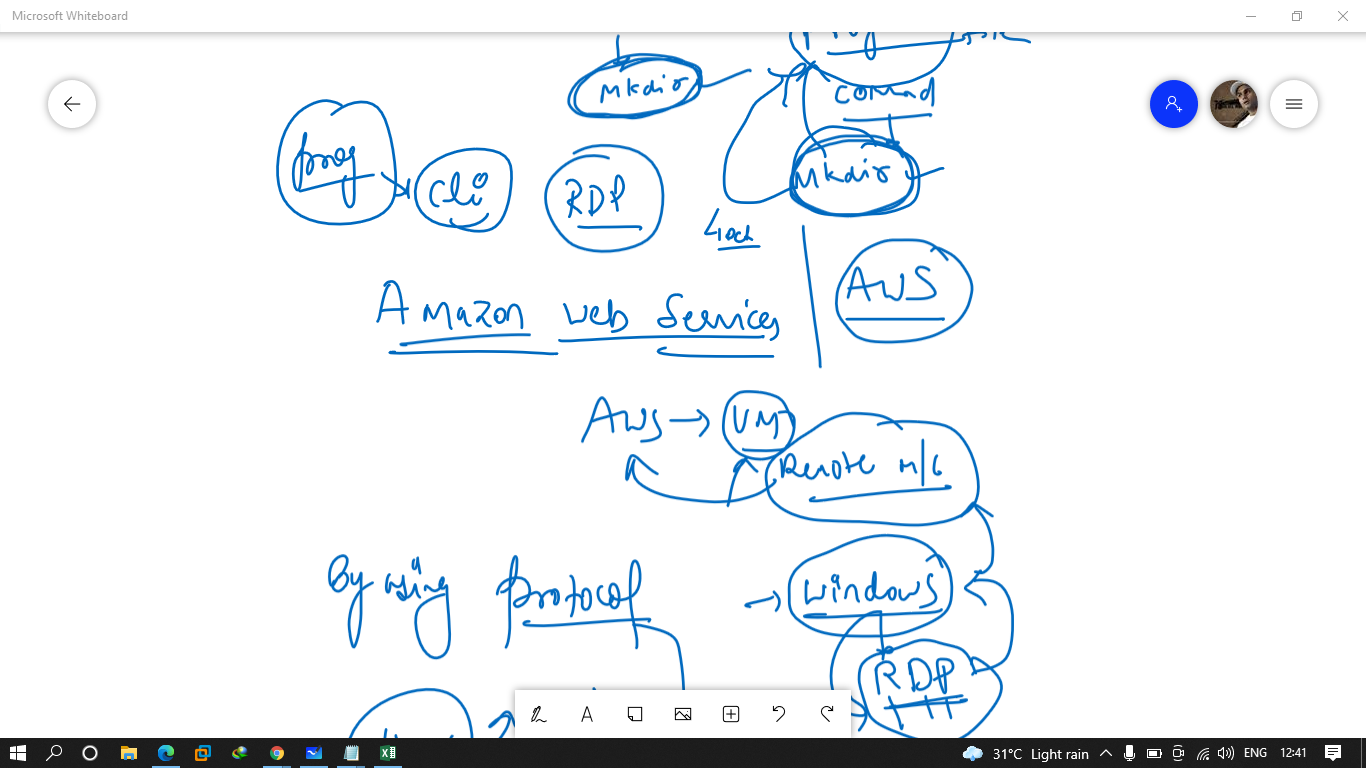 Microsoft Whiteboard
Mkdir
comnad
Mkdir
prog
cli
RDP
AWS
Amazon web Services
AWS → VM
Remote M/C
By using protocol
→ windows
RDP
31°C Light rain
ENG
12:41